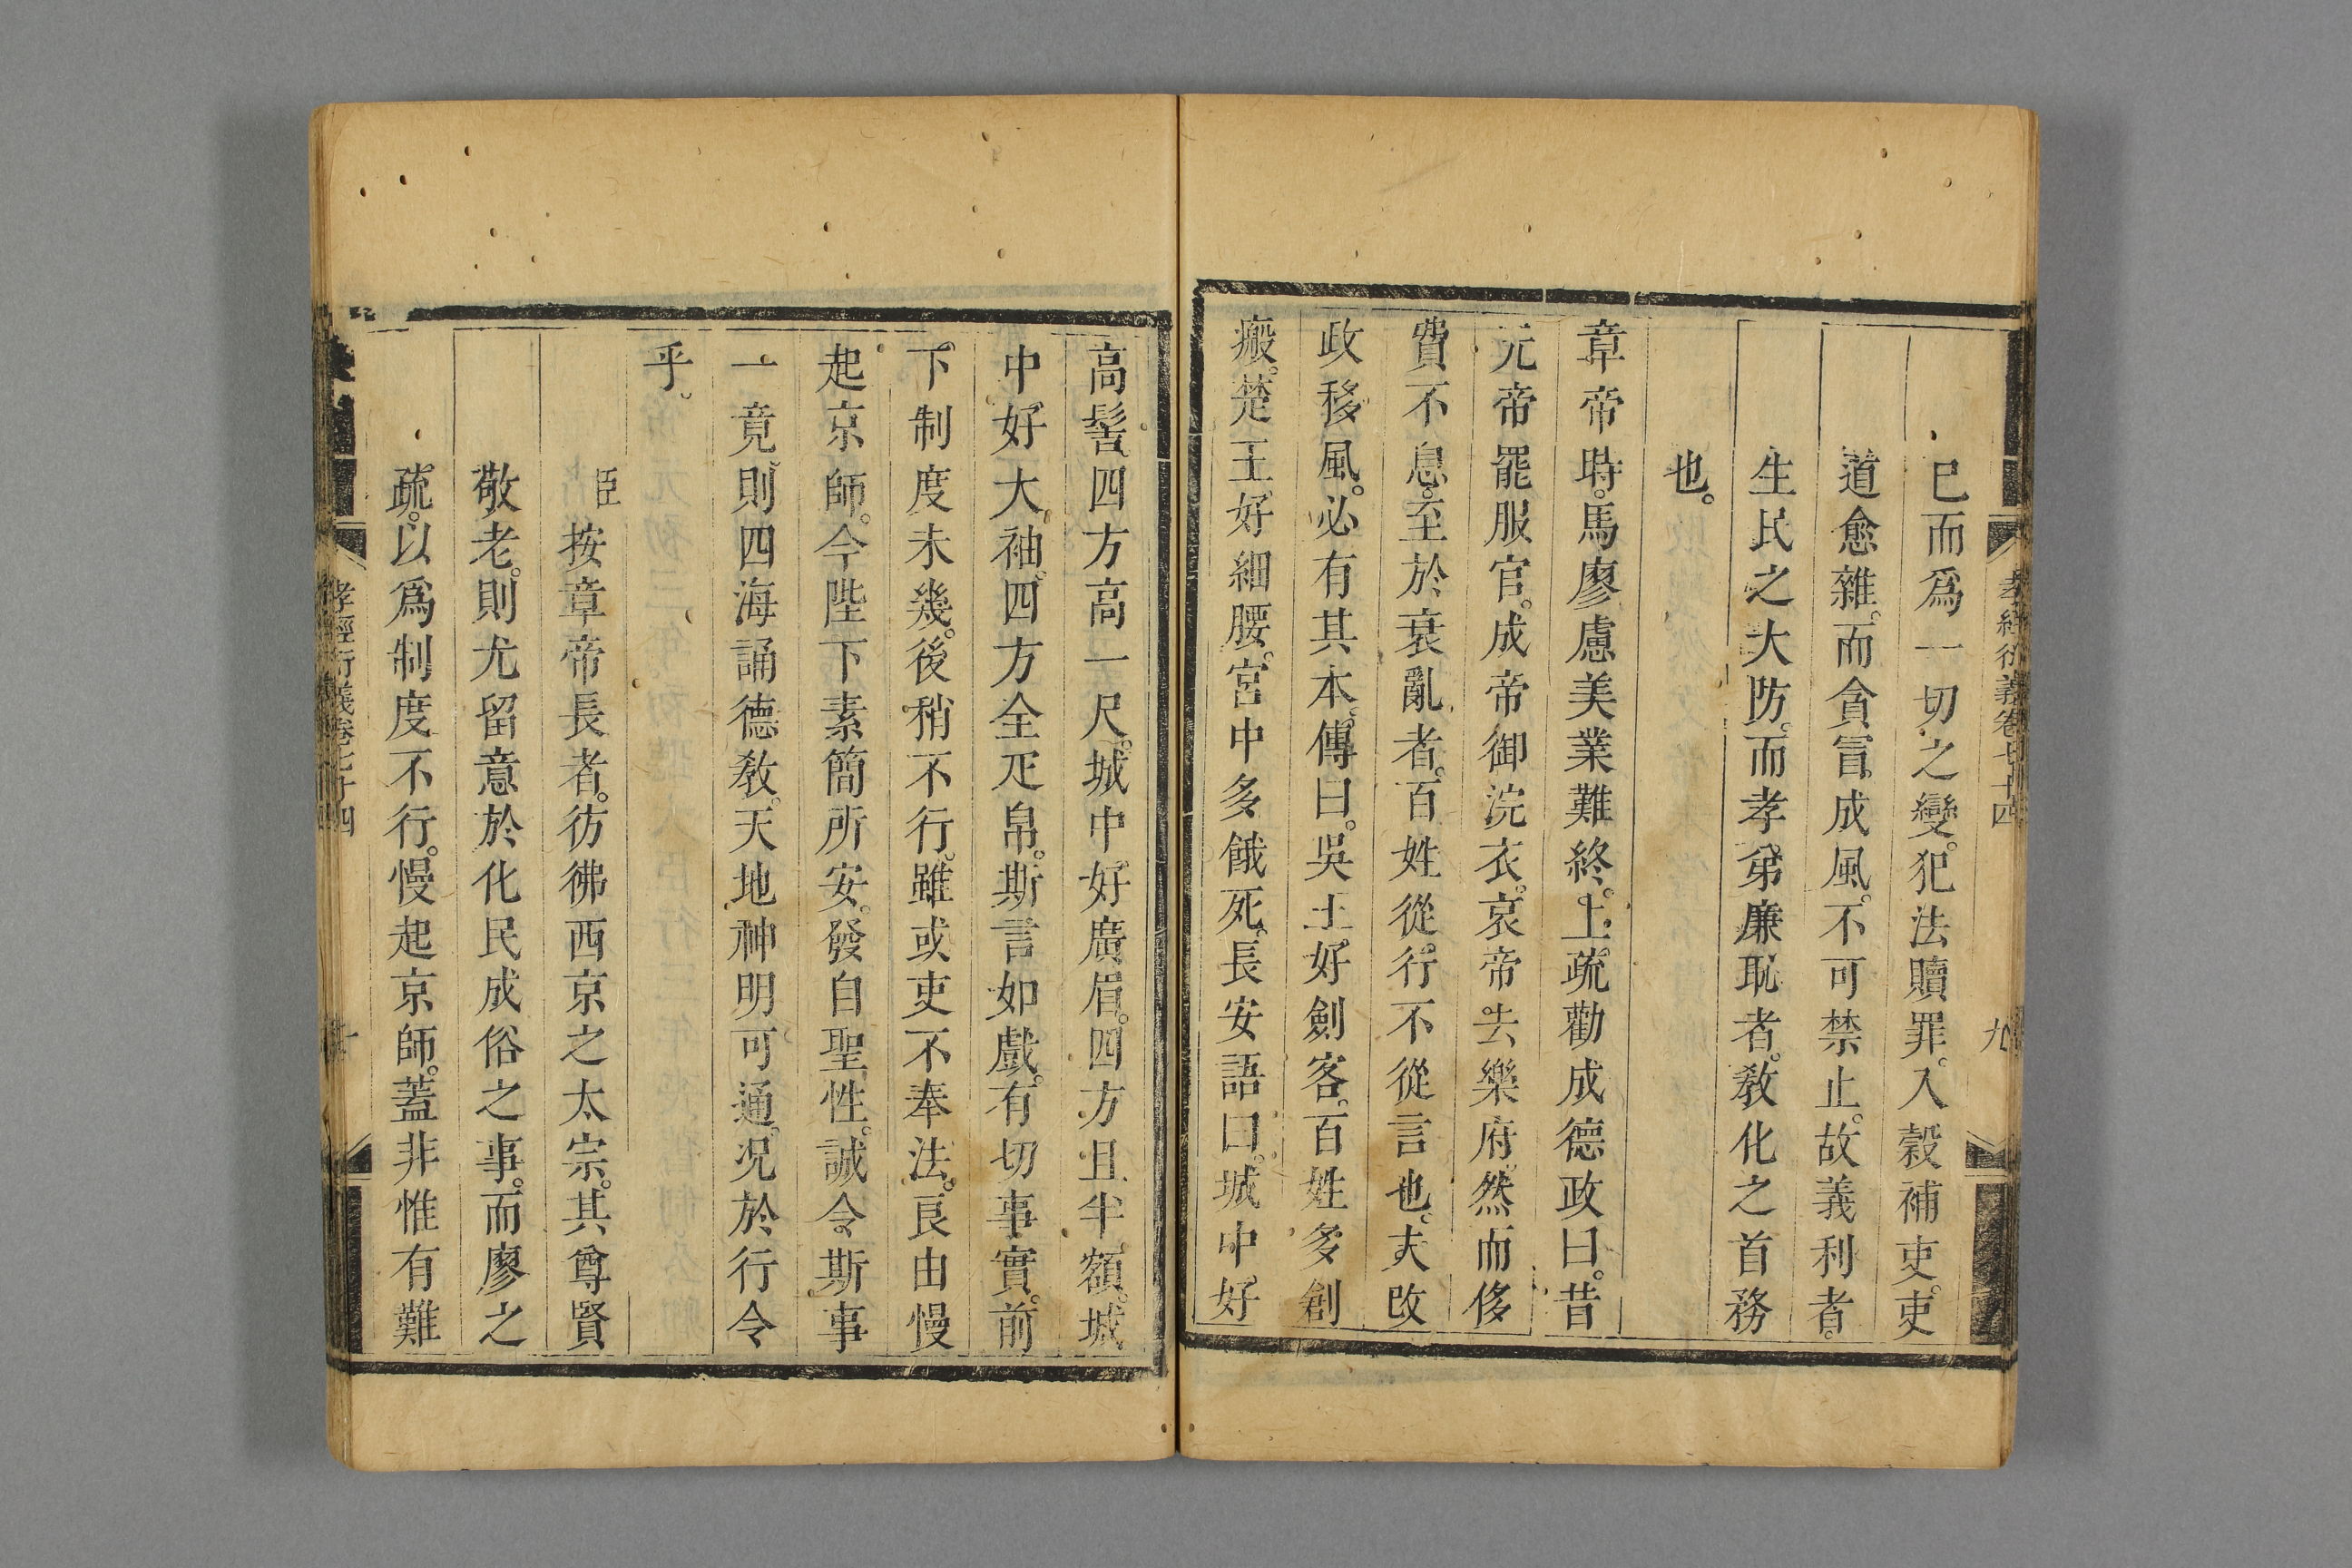 孝經衍義卷七十四
九
已而爲一切之變。犯法贖罪。入穀補吏。吏
道愈雜。而貪冐成風。不可禁止。故義利者。
生民之大防。而孝弟廉恥者。敎化之首務
也。
章帝時。馬廖慮美業難終。上疏勸成德政曰。昔
元帝罷服官。成帝御浣衣。哀帝去樂府。然而侈
費不息。至於衰亂者。百姓從行不從言也。夫改
政移風。必有其本。傳曰。吳王好劍客。百姓多創
瘢。楚王好細腰。宮中多餓死。長安語曰。城中好
高髻。四方高一尺。城中好廣眉。四方且半額。城
中好大袖。四方全疋帛。斯言如戲。有切事實。前
下制度未幾。後稍不行。雖或吏不奉法。良由慢
起京師。今陛下素簡所安。發自聖性。誠令斯事
一竟。則四海誦德敎。天地神明可通。况於行令
乎。
臣按章帝長者。彷彿西京之太宗。其尊賢
敬老。則尤留意於化民成俗之事。而廖之
疏。以爲制度不行。慢起京師。蓋非惟有難
孝經衍義卷七十四
十